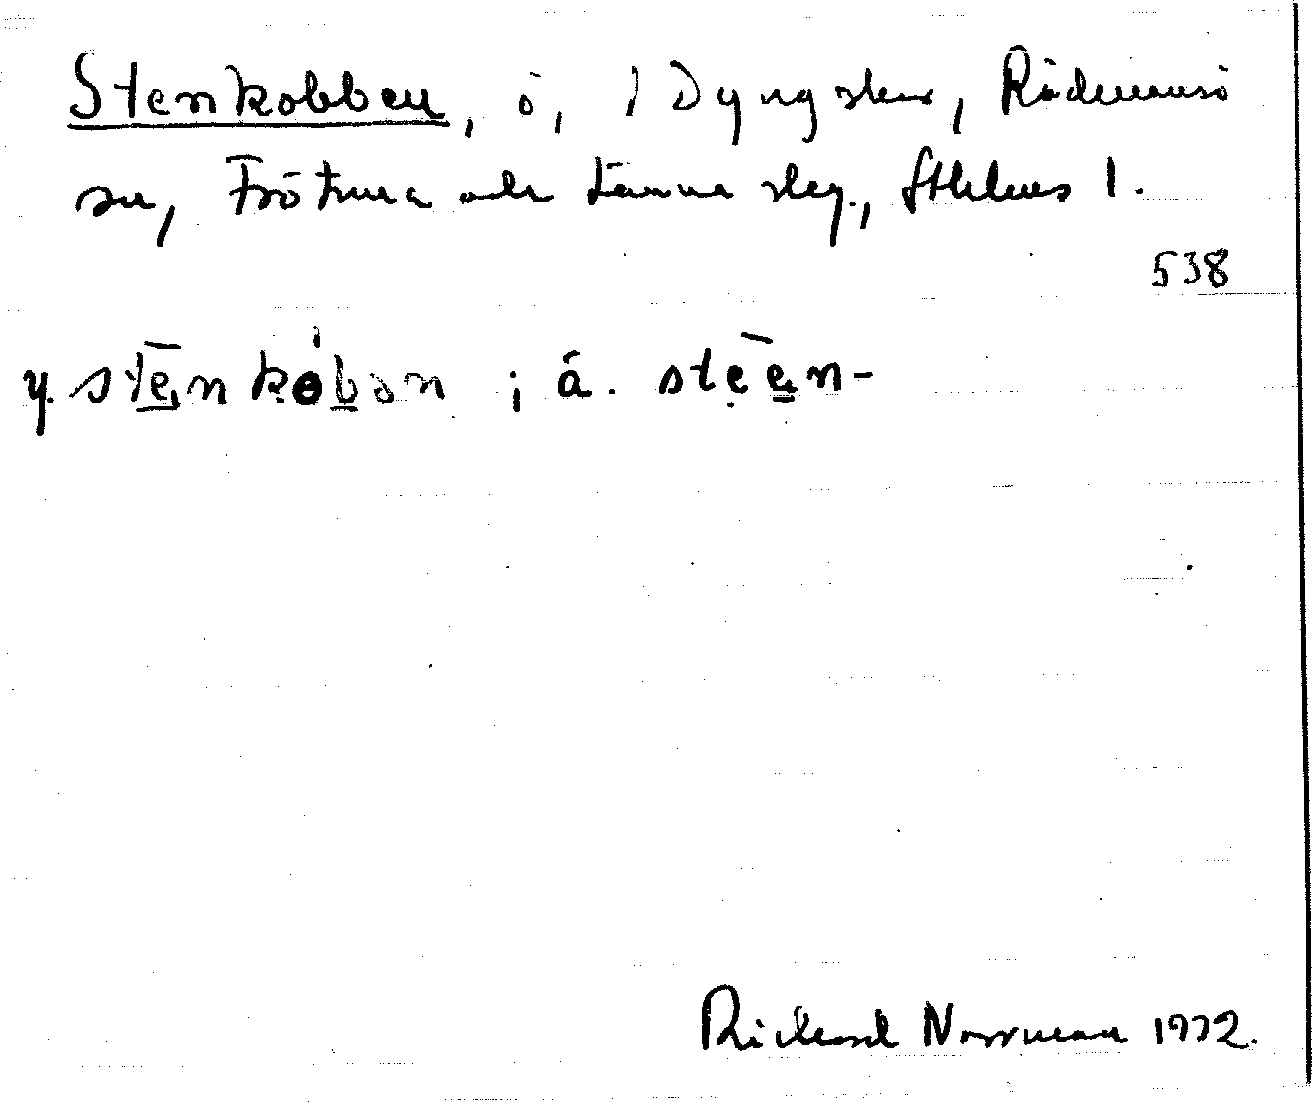 Stenkobben, ö, i Dyngsken, Rådmansö
sn, Frötuna och Länna skg., Sthlms l.
538
y. stēnkobən ; ä. stēen-
Rickard Norrman 1972.